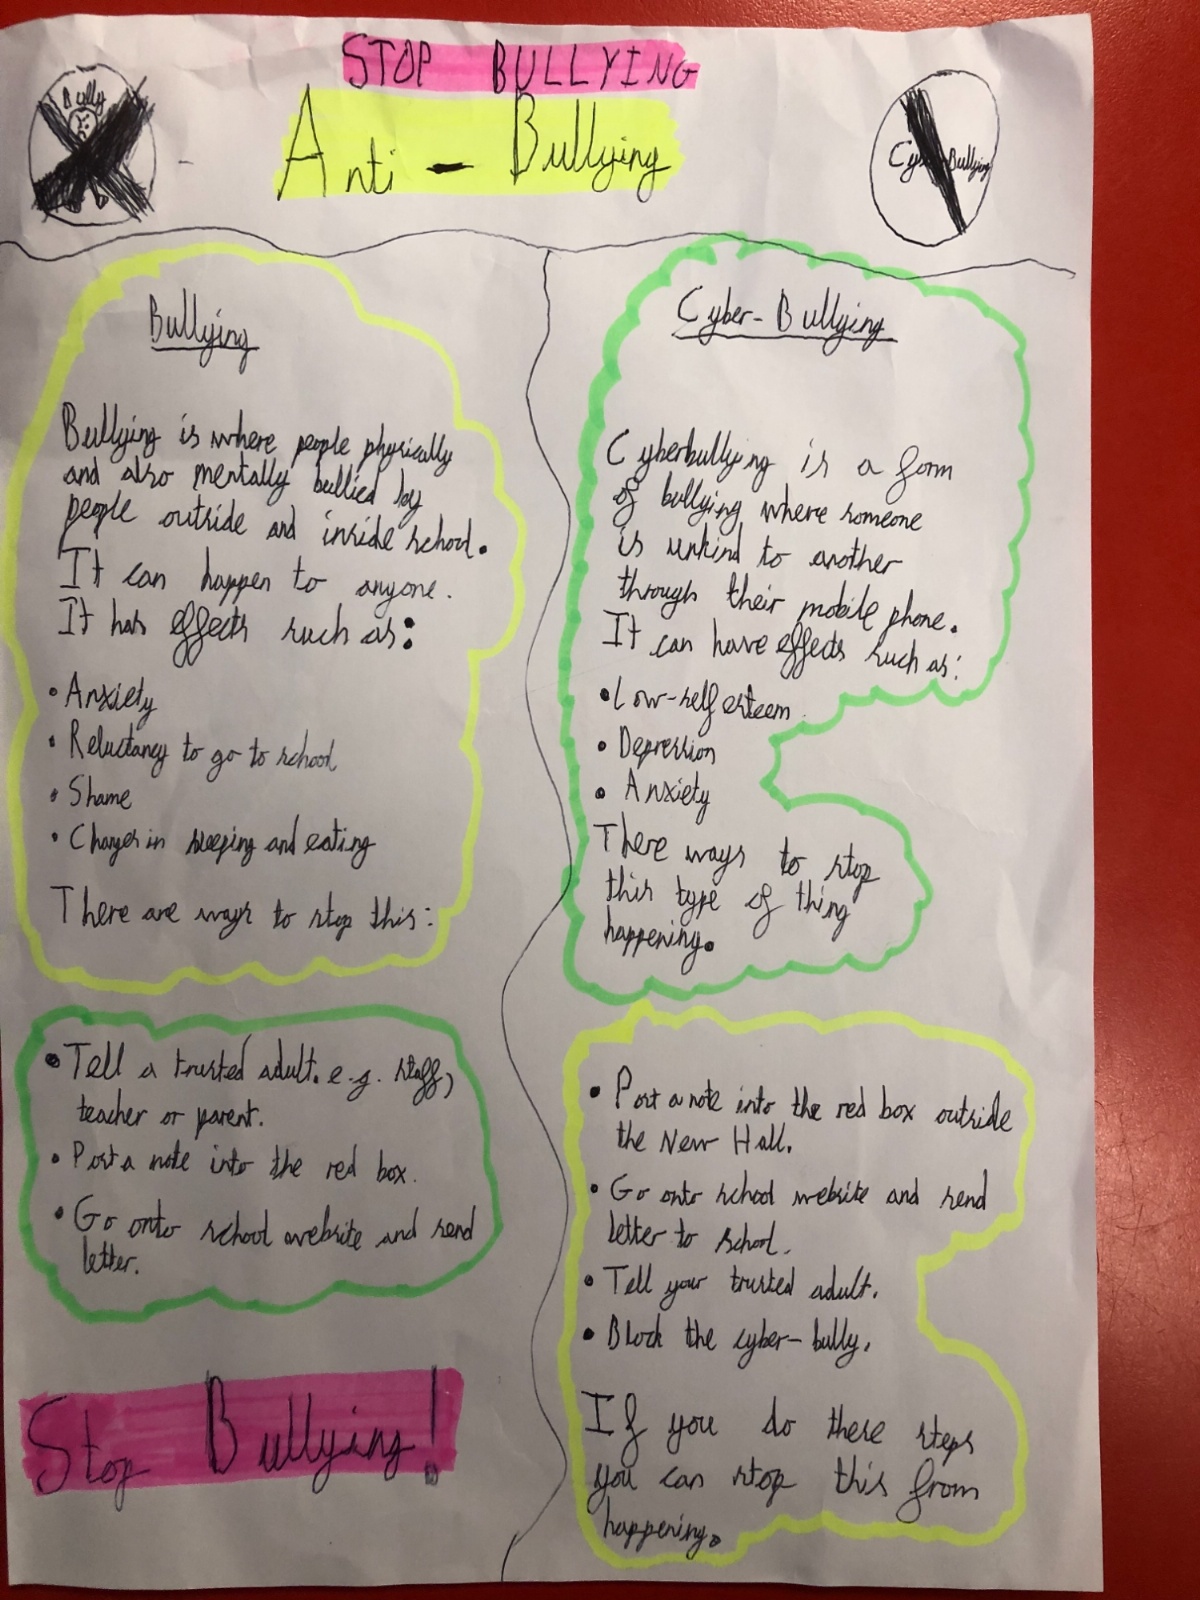 STOP BULLYING
Anti - Bullying
Bully
Cyber Bullying
Bullying
Bullying is where people physically
and also mentally bullied by
people outside and inside school.
It can happen to anyone.
It has effects such as:
• Anxiety
• Reluctancy to go to school
• Shame
• Changes in sleeping and eating
There are ways to stop this:
• Tell a trusted adult. e.g. staff,
teacher or parent.
• Post a note into the red box.
• Go onto school website and send
letter.
Stop Bullying!
Cyber-Bullying
Cyberbullying is a form
of bullying where someone
is unkind to another
through their mobile phone.
It can have effects such as:
• Low-self esteem
• Depression
• Anxiety
There ways to stop
this type of thing
happening.
• Post a note into the red box outside
the New Hall.
• Go onto school website and send
letter to school.
• Tell your trusted adult.
• Block the cyber-bully.
If you do these steps
you can stop this from
happening.